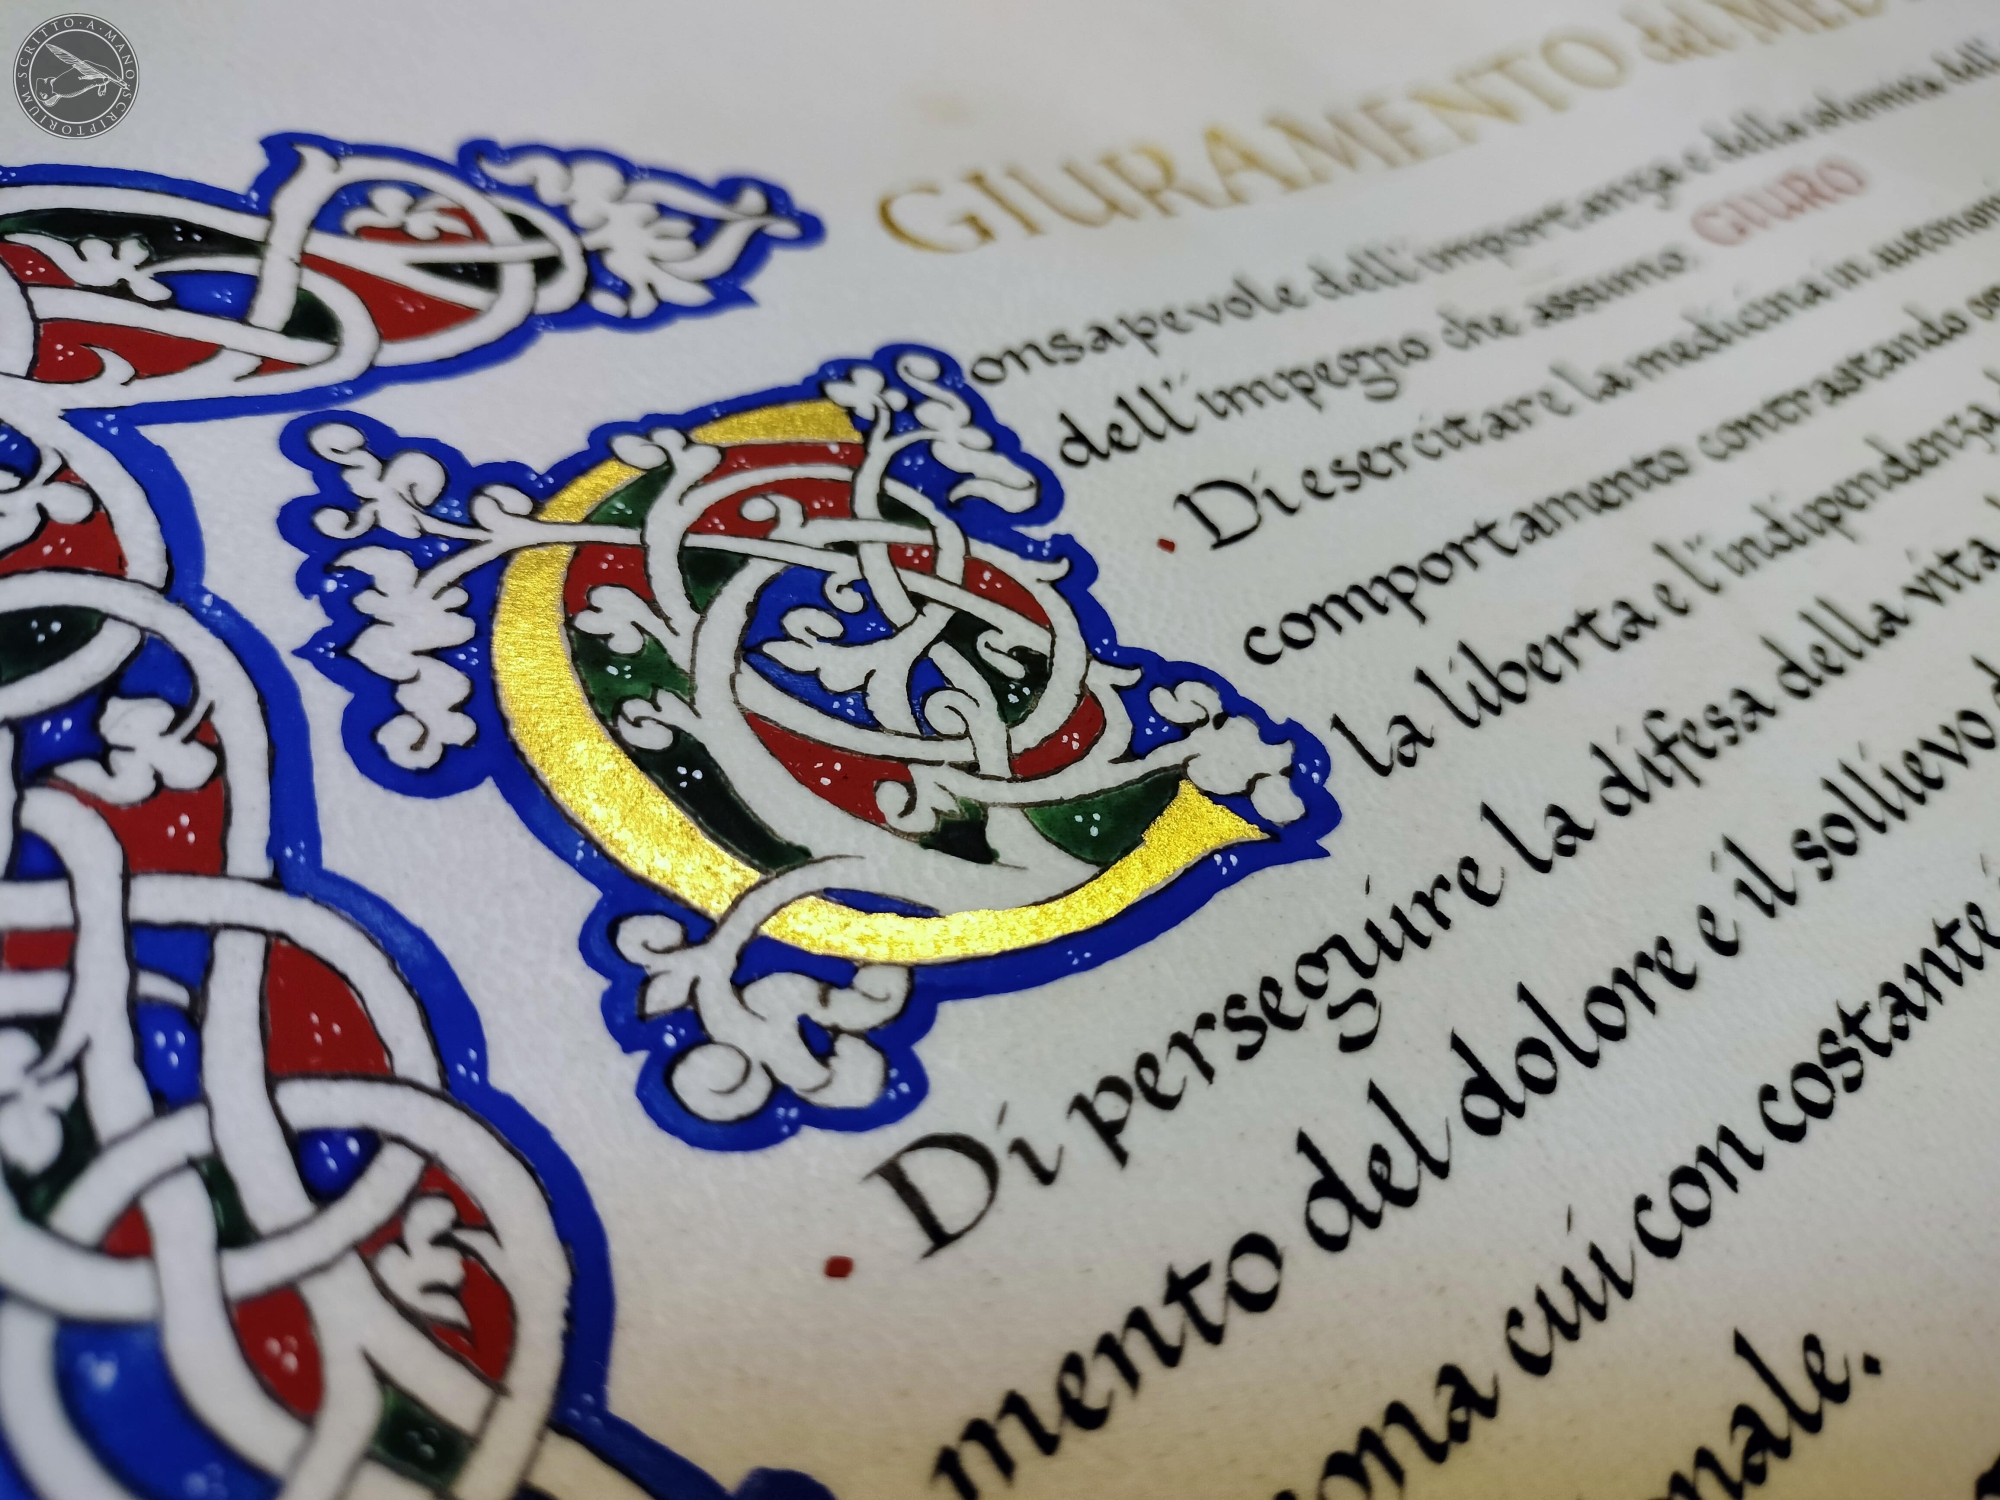 SCRITTO · A · MANO · SCRIPTORIUM
GIURAMENTO del MED
Consapevole dell'importanza e della solennità dell'
dell'impegno che assumo GIURO
· Di esercitare la medicina in autonomi
comportamento contrastando
la libertà e l'indipendenza
· Di perseguire la difesa della vita
mento del dolore e il sollievo d
ona cui con costante
nale.